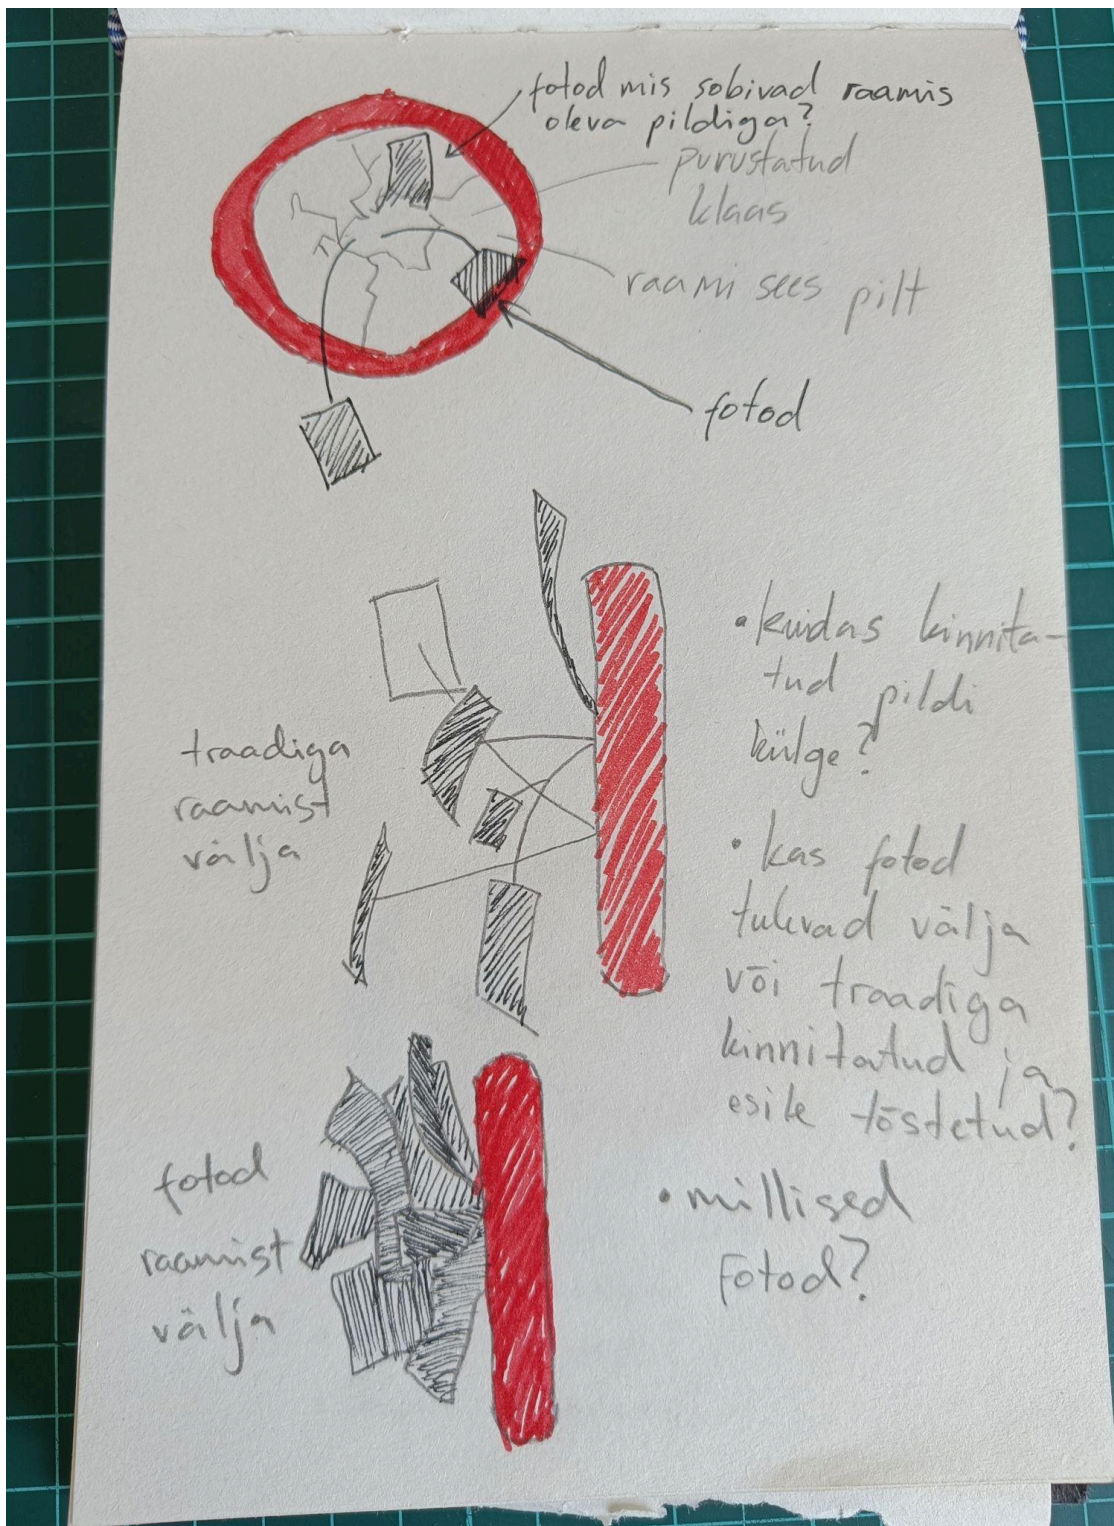 fotod mis sobivad raamis
oleva pildiga?
purustatud
klaas
raami sees pilt
fotod
traadiga
raamist
välja
• kuidas kinnita-
tud pildi
külge?
• kas fotod
tulevad välja
või traadiga
kinnitatud ja
esile tõstetud?
fotod
raamist
välja
• millised
fotod?